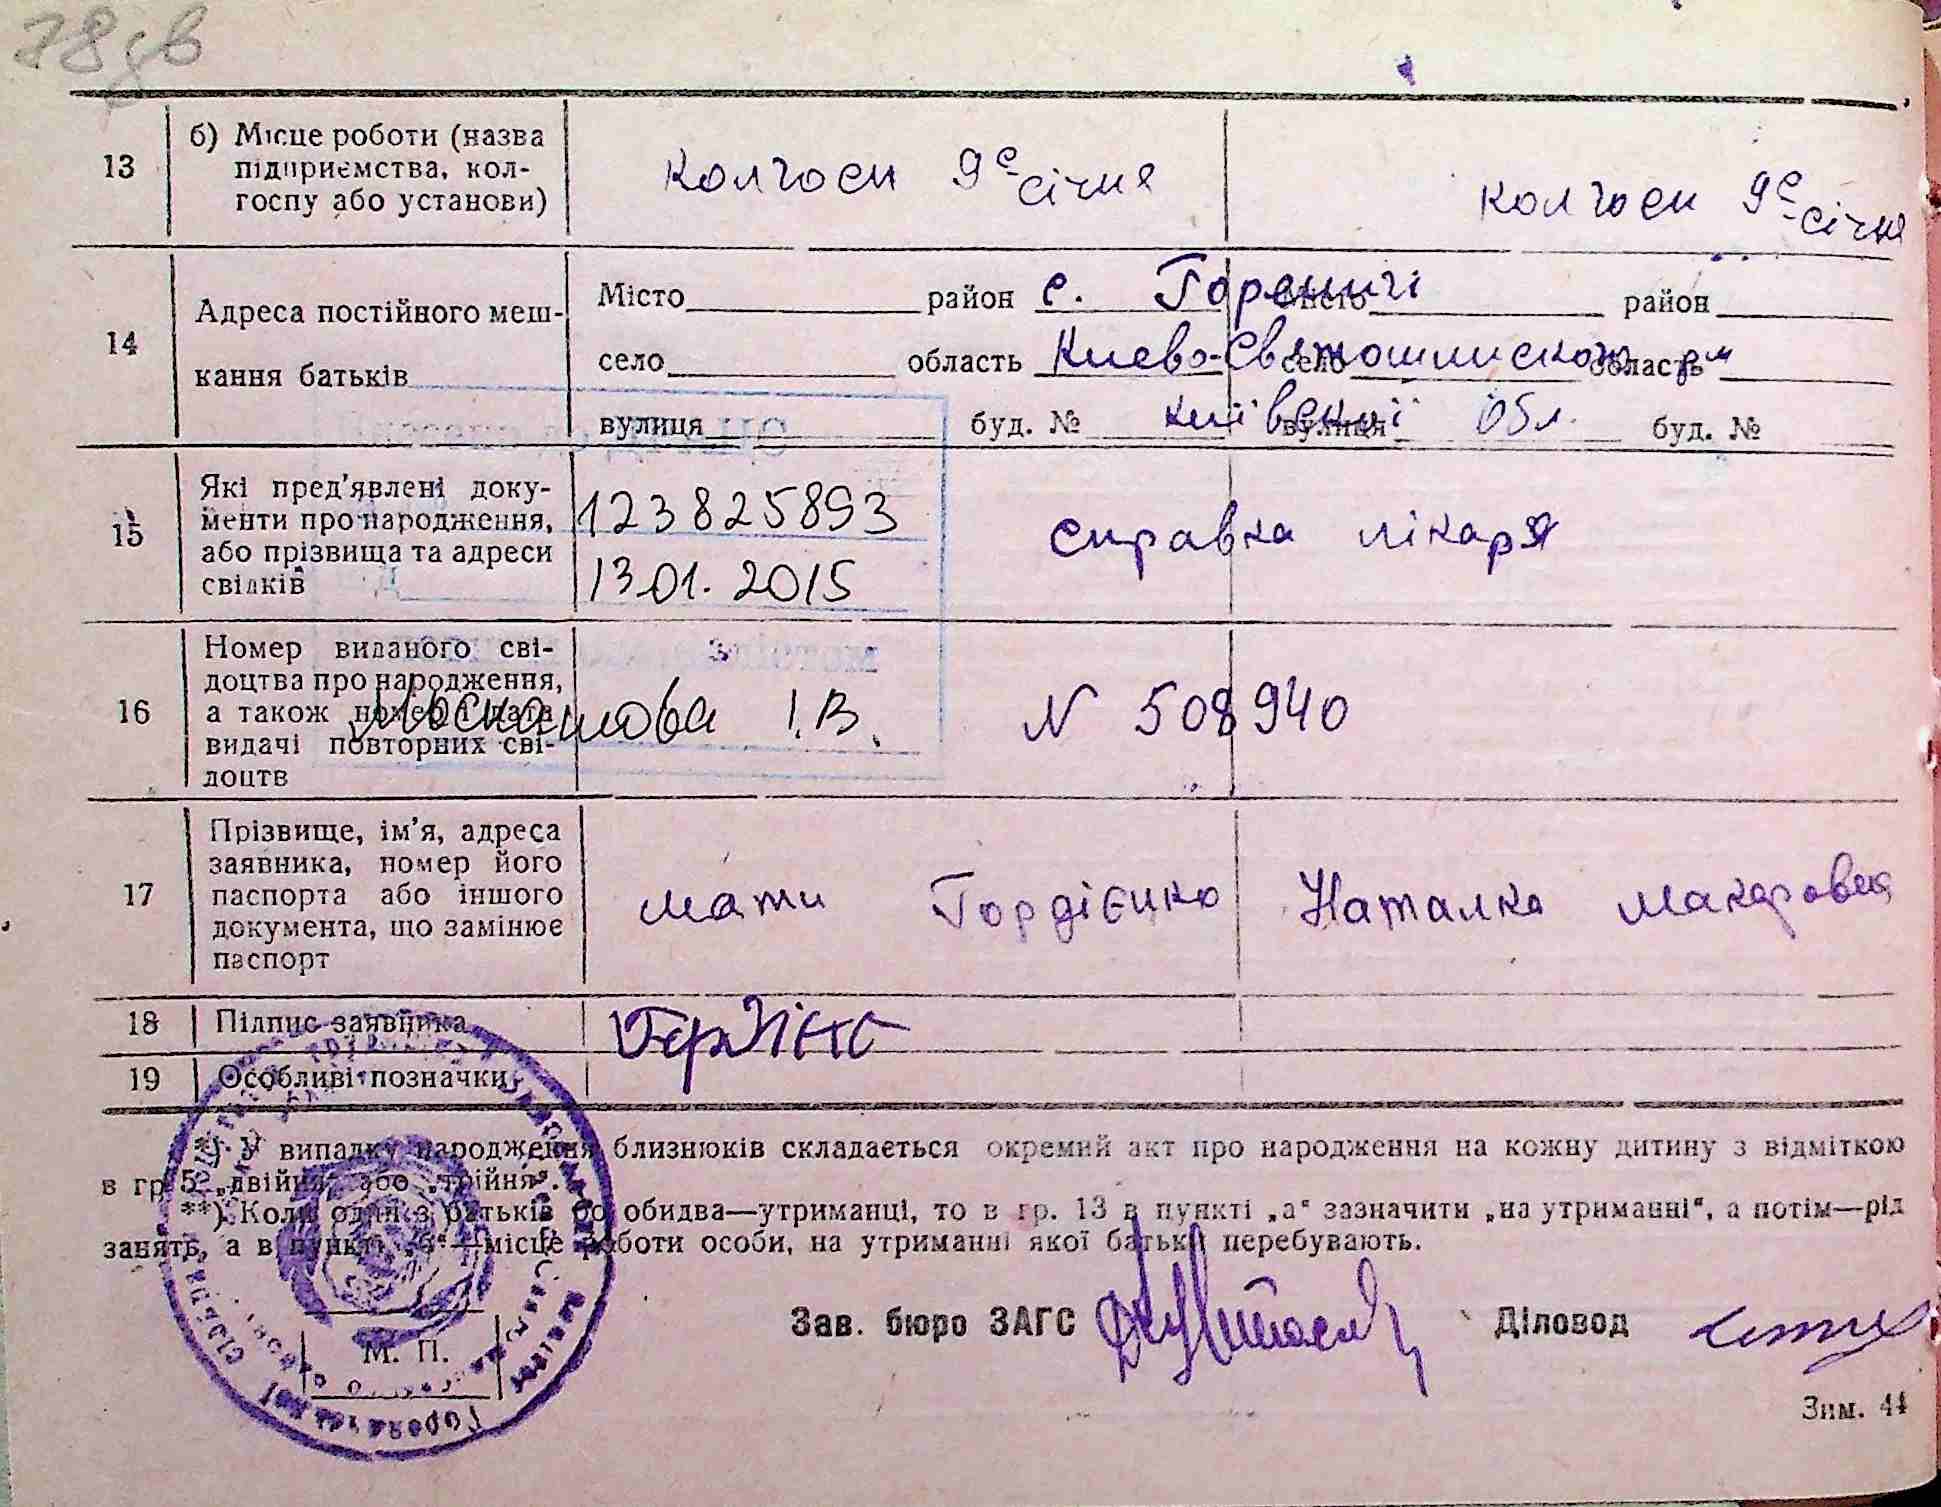 78 зв
13
б) Місце роботи (назва
підприємства, кол-
госпу або установи)
колгосп 9е січня
колгосп 9е січня
14
Адреса постійного меш-
кання батьків
Місто район с. Гореничі
Місто район
село область Києво-Святошинского р-н
село область
вулиця буд. № київської обл.
вулиця буд. №
15
Які пред'явлені доку-
менти про народження,
або прізвища та адреси
свідків
123825893
13.01.2015
справка лікаря
16
Номер виданого сві-
доцтва про народження,
а також номер і дата
видачі повторних сві-
доцтв
І.В.
N 508940
17
Прізвище, ім'я, адреса
заявника, номер його
паспорта або іншого
документа, що замінює
паспорт
мати Гордієнко Наталка Макаровна
18
Підпис заявника
19
Особливі позначки
*) У випадку народження близнюків складається окремий акт про народження на кожну дитину з відміткою
в гр. 5 „двійня" або „трійня".
**) Коли один з батьків або обидва—утриманці, то в гр. 13 в пункті „а" зазначити „на утриманні", а потім—рід
занять, а в пункті „б"—місце роботи особи, на утриманні якої батьки перебувають.
Зав. бюро ЗАГС
Діловод
М. П.
Зим. 44